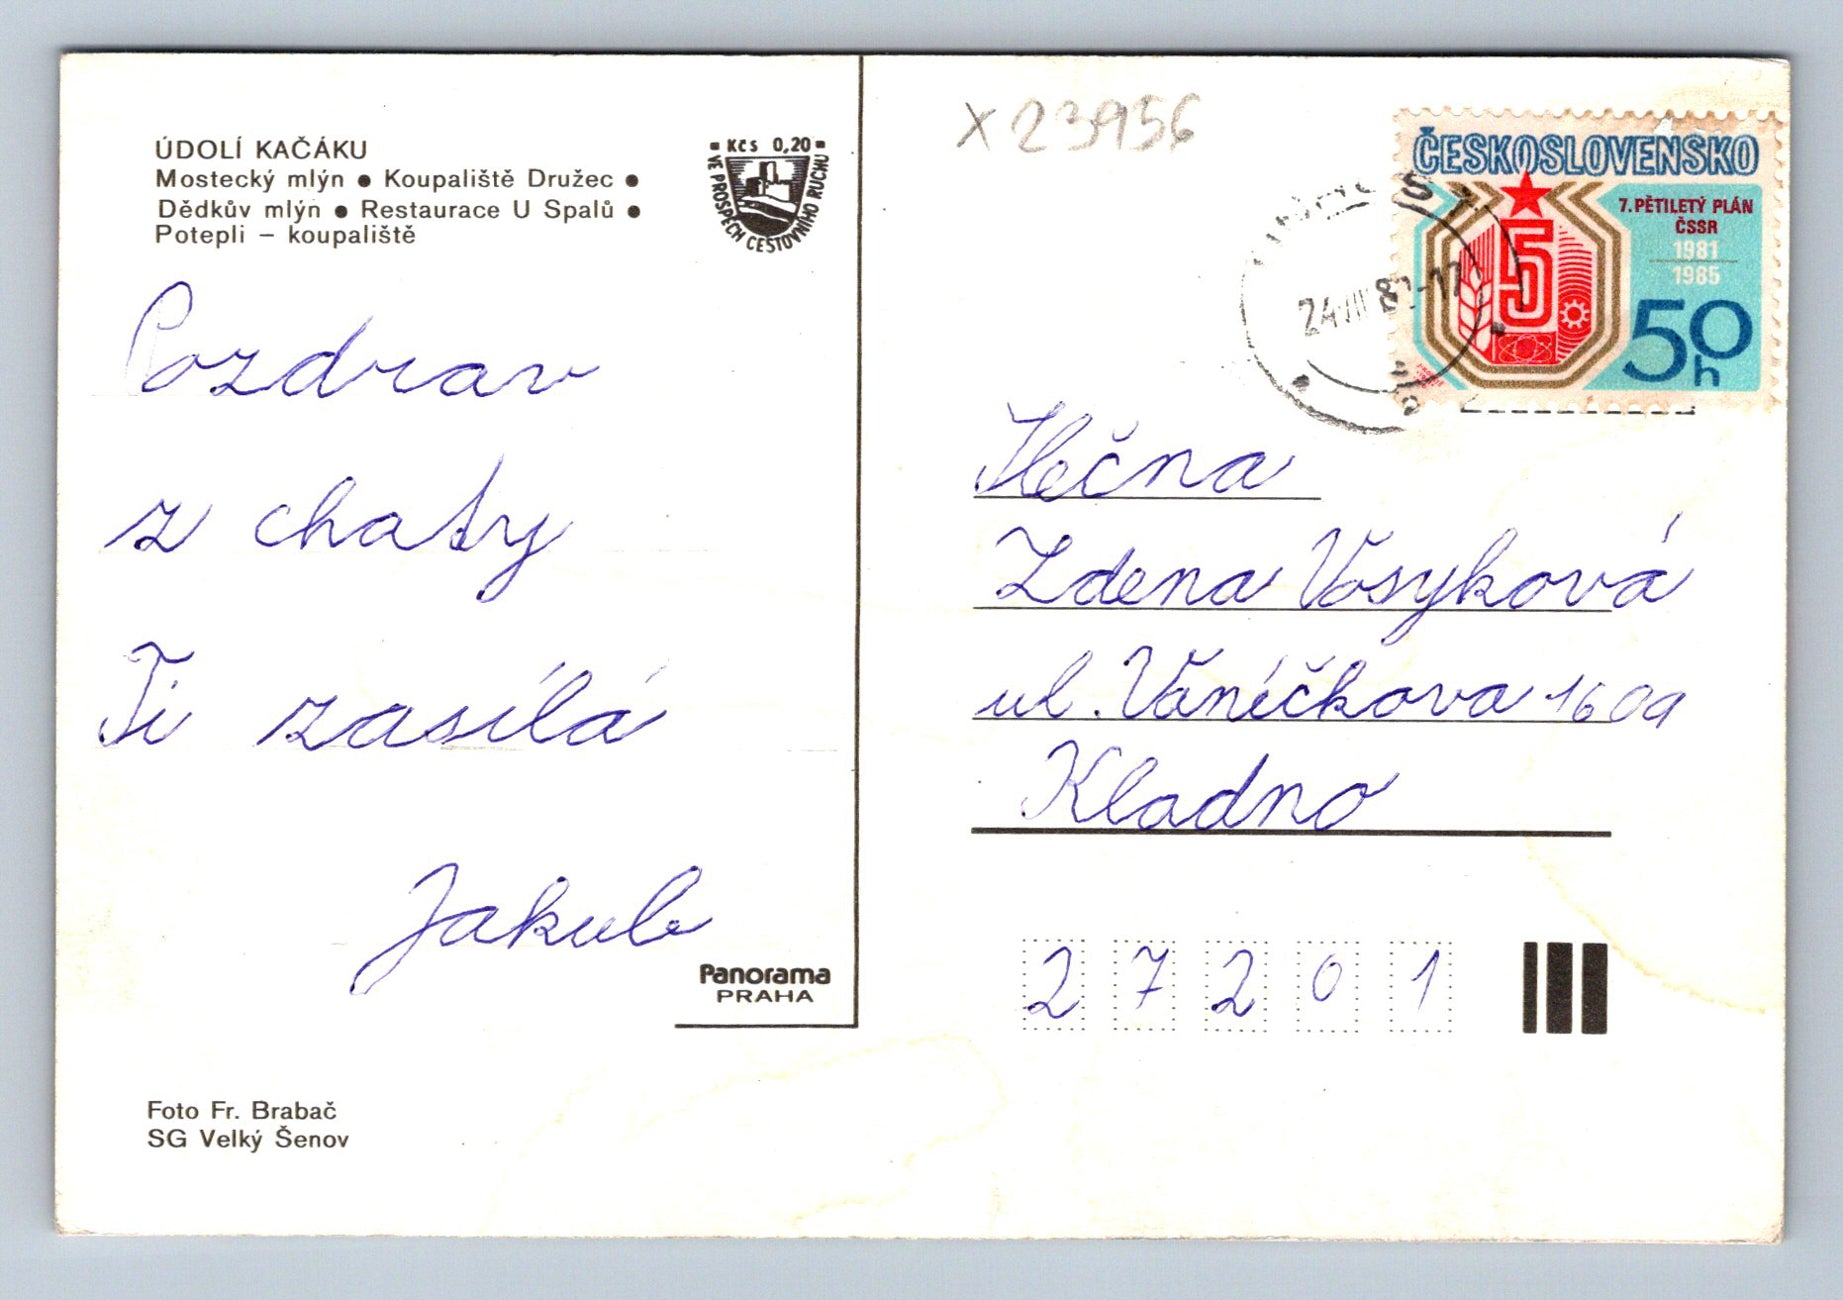 ÚDOLÍ KAČÁKU
Mostecký mlýn ● Koupaliště Družec ●
Dědkův mlýn ● Restaurace U Spalů ●
Potepli – koupaliště
Kčs 0,20
VE PROSPĚCH CESTOVNÍHO RUCHU
Pozdrav
z chaty
Ti zasílá
Jakub
Panorama
PRAHA
Foto Fr. Brabač
SG Velký Šenov
X 23956
ČESKOSLOVENSKO
7. PĚTILETÝ PLÁN
ČSSR
1981
1985
5
50
h
24.VIII.8 -17
Slečna
Zdena Vosyková
ul. Vaníčkova 1609
Kladno
27201